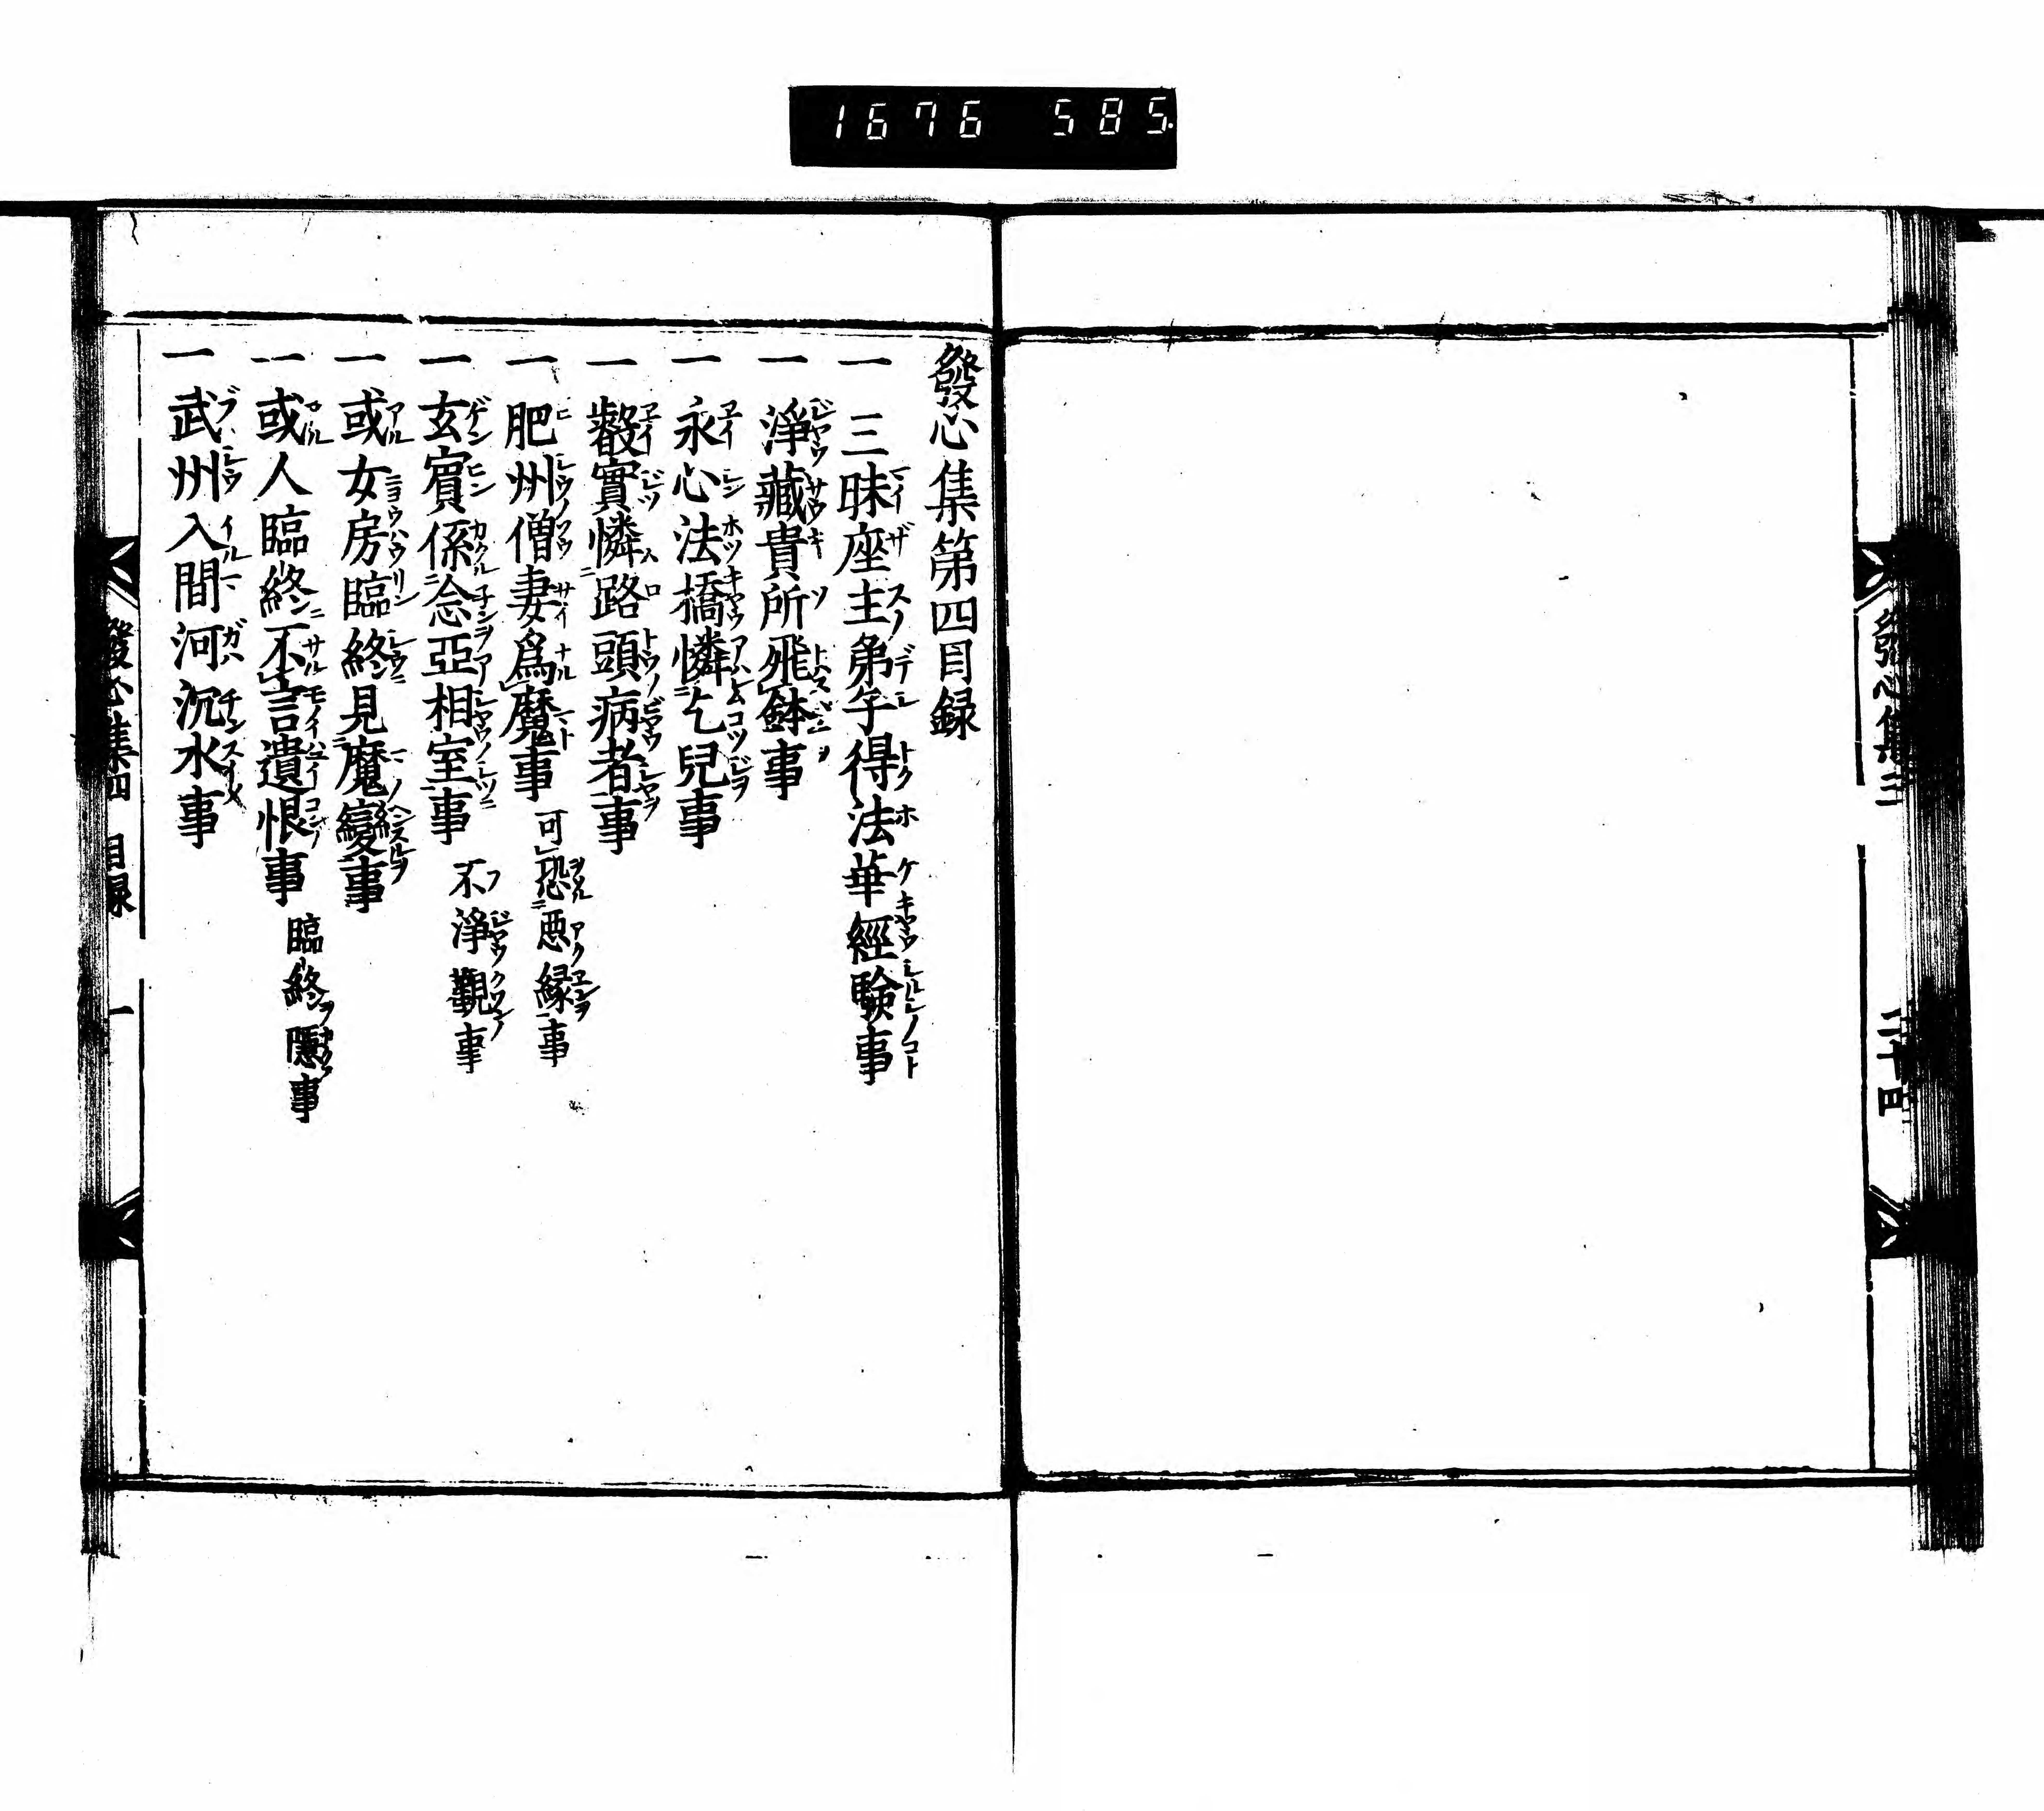 1676 585
發心集三
二十四
發心集第四目録
一 三昧座主弟子得法華經験事
一 淨藏貴所飛鉢事
一 永心法橋憐乞兒事
一 叡實憐路頭病者事
一 肥州僧妻爲魔事 可恐悪縁事
一 玄賓係念亞相室事 不淨觀事
一 或女房臨終見魔變事
一 或人臨終不言遺恨事 臨終隱事
一 武州入間河沉水事
發心集四 目録 一